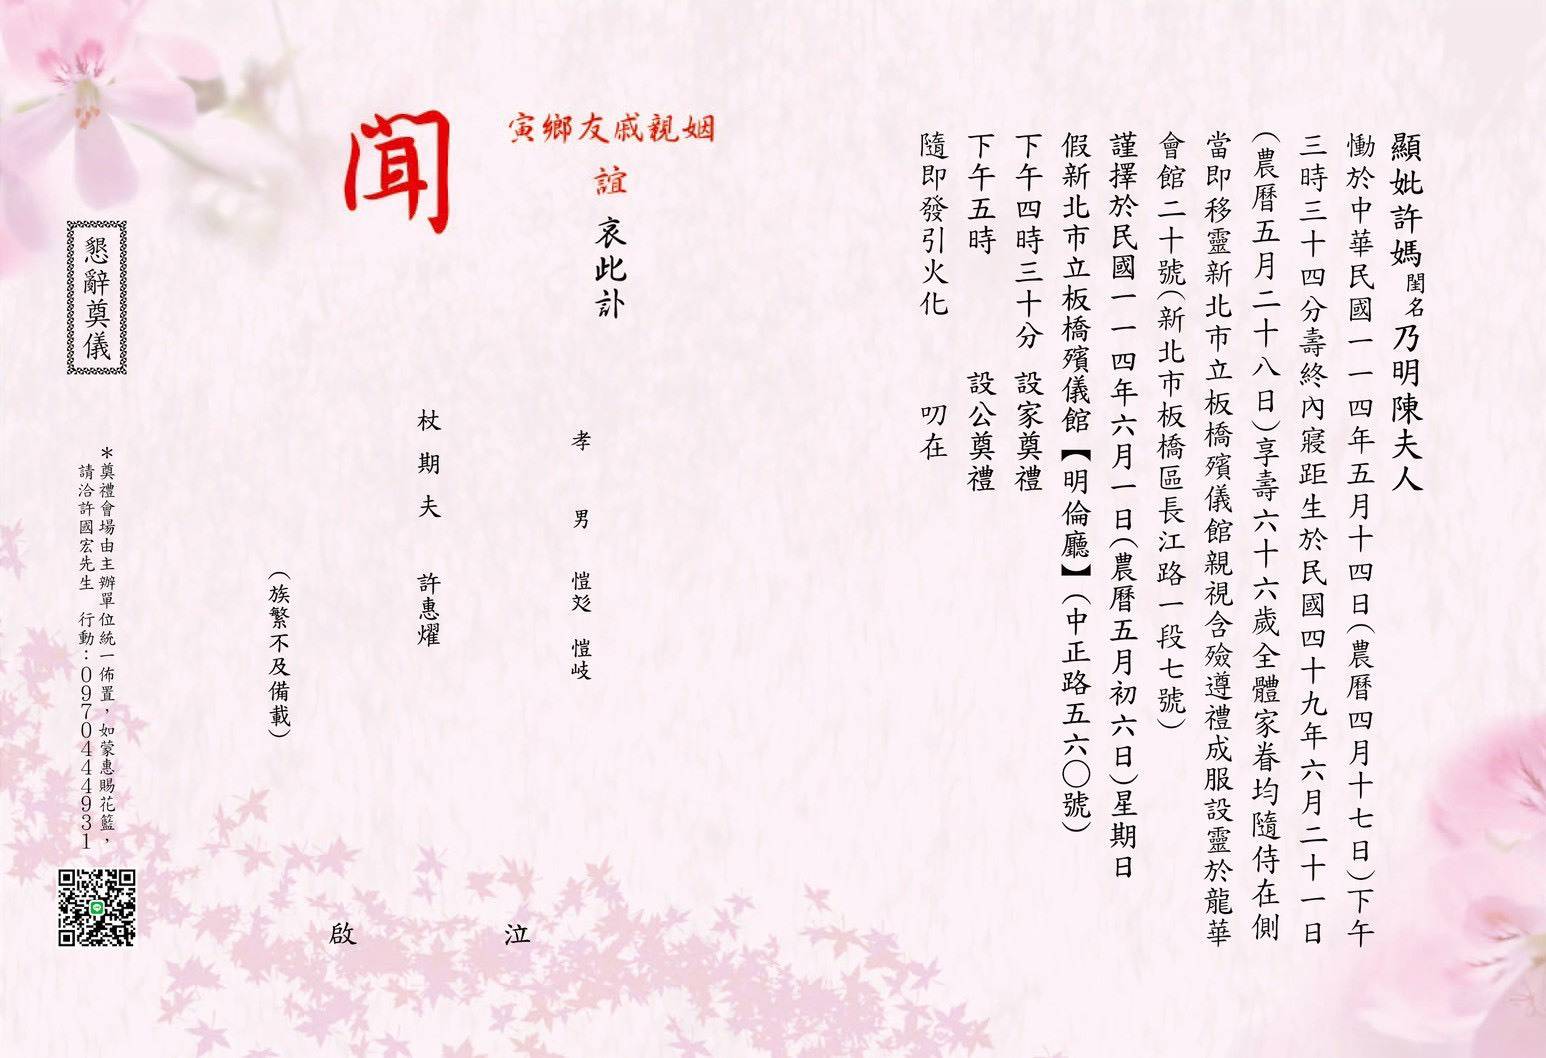 顯妣許媽閨名乃明陳夫人
慟於中華民國一一四年五月十四日(農曆四月十七日)下午
三時三十四分壽終內寢距生於民國四十九年六月二十一日
(農曆五月二十八日)享壽六十六歲全體家眷均隨侍在側
當即移靈新北市立板橋殯儀館親視含殮遵禮成服設靈於龍華
會館二十號(新北市板橋區長江路一段七號)
謹擇於民國一一四年六月一日(農曆五月初六日)星期日
假新北市立板橋殯儀館【明倫廳】(中正路五六〇號)
下午四時三十分 設家奠禮
下午五時 設公奠禮
隨即發引火化 叨在
姻親戚友鄉寅
誼哀此訃
聞
孝男 愷彣 愷岐
杖期夫 許惠燿
(族繁不及備載)
泣
啟
懇辭奠儀
＊奠禮會場由主辦單位統一佈置，如蒙惠賜花籃，
請洽許國宏先生 行動：0970444931